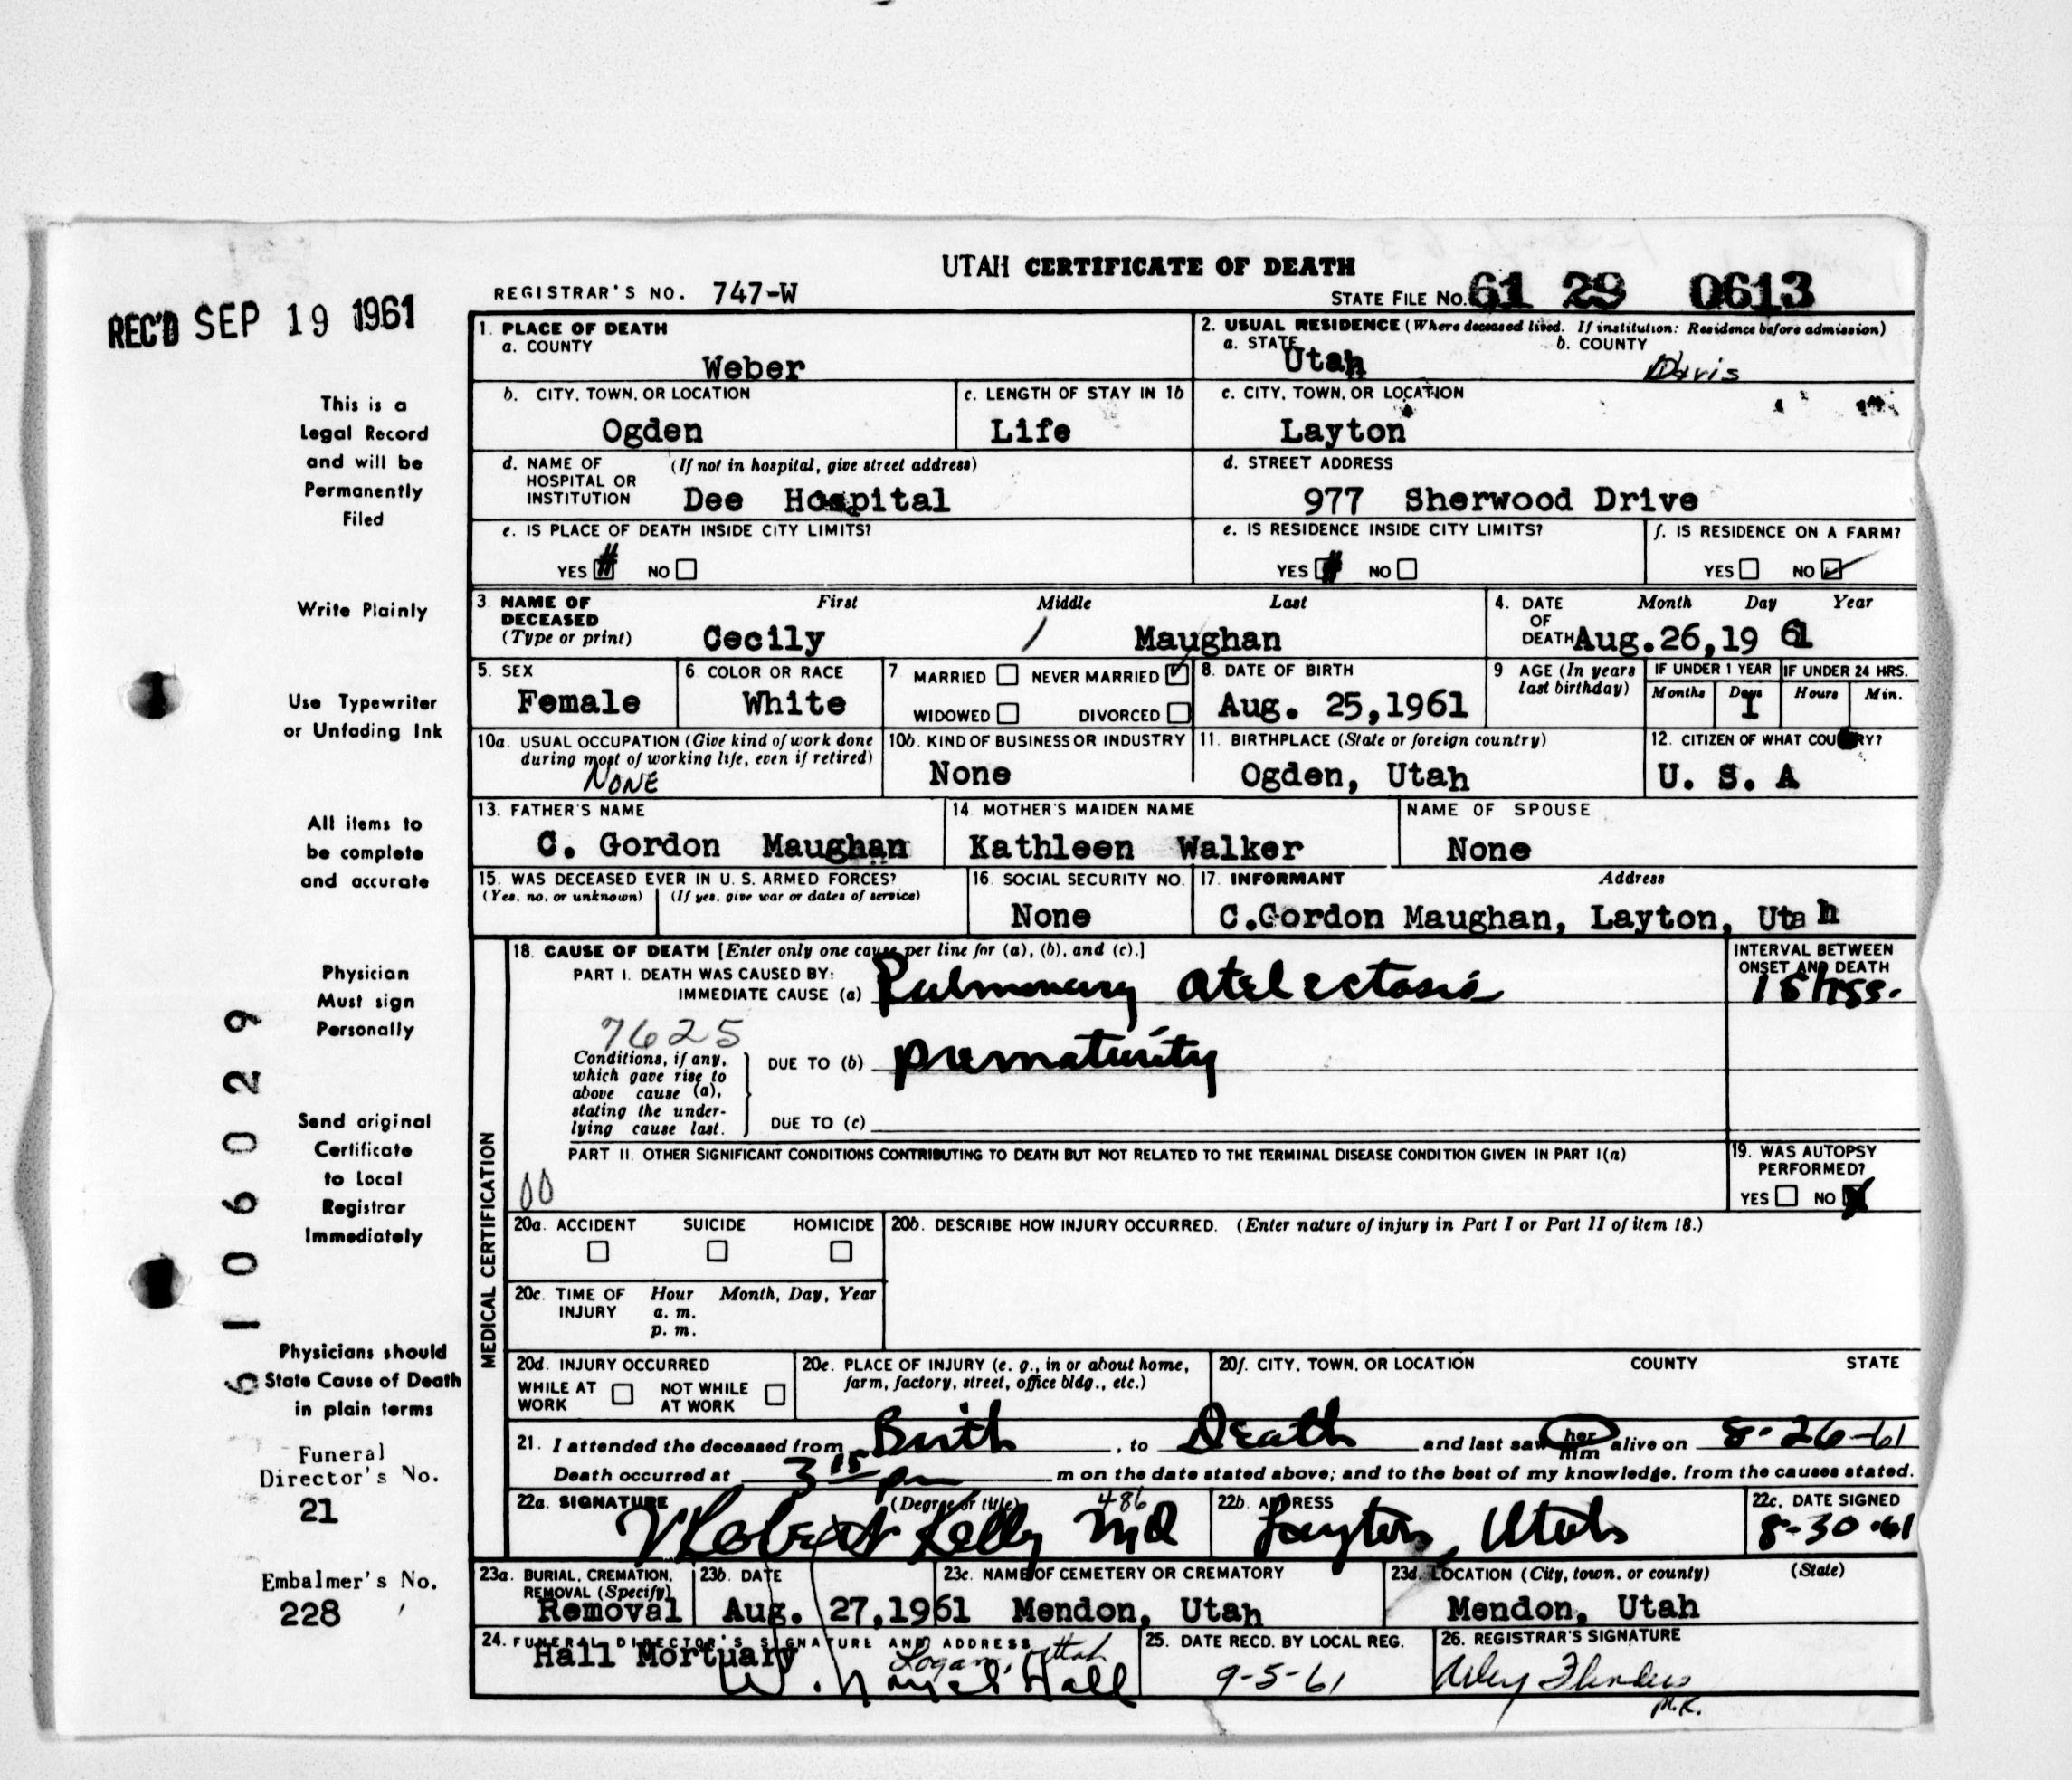 UTAH CERTIFICATE OF DEATH
REGISTRAR'S NO. 747-W
STATE FILE NO. 61 29 0613
REC'D SEP 19 1961
This is a
Legal Record
and will be
Permanently
Filed
Write Plainly
Use Typewriter
or Unfading Ink
All items to
be complete
and accurate
Physician
Must sign
Personally
Send original
Certificate
to Local
Registrar
Immediately
Physicians should
State Cause of Death
in plain terms
Funeral
Director's No.
21
Embalmer's No.
228
6106029
1. PLACE OF DEATH
a. COUNTY
Weber
2. USUAL RESIDENCE (Where deceased lived. If institution: Residence before admission)
a. STATE Utah b. COUNTY Davis
b. CITY, TOWN, OR LOCATION
Ogden
c. LENGTH OF STAY IN 1b
Life
c. CITY, TOWN, OR LOCATION
Layton
d. NAME OF HOSPITAL OR INSTITUTION (If not in hospital, give street address)
Dee Hospital
d. STREET ADDRESS
977 Sherwood Drive
e. IS PLACE OF DEATH INSIDE CITY LIMITS?
YES NO
e. IS RESIDENCE INSIDE CITY LIMITS?
YES NO
f. IS RESIDENCE ON A FARM?
YES NO
3. NAME OF DECEASED (Type or print)
First Middle Last
Cecily / Maughan
4. DATE OF DEATH Month Day Year
Aug. 26, 19 61
5. SEX
Female
6. COLOR OR RACE
White
7. MARRIED NEVER MARRIED
WIDOWED DIVORCED
8. DATE OF BIRTH
Aug. 25, 1961
9. AGE (In years last birthday)
IF UNDER 1 YEAR IF UNDER 24 HRS.
Months Days Hours Min.
1
10a. USUAL OCCUPATION (Give kind of work done during most of working life, even if retired)
NONE
10b. KIND OF BUSINESS OR INDUSTRY
None
11. BIRTHPLACE (State or foreign country)
Ogden, Utah
12. CITIZEN OF WHAT COUNTRY?
U. S. A
13. FATHER'S NAME
C. Gordon Maughan
14. MOTHER'S MAIDEN NAME
Kathleen Walker
NAME OF SPOUSE
None
15. WAS DECEASED EVER IN U. S. ARMED FORCES?
(Yes, no, or unknown) (If yes, give war or dates of service)
16. SOCIAL SECURITY NO.
None
17. INFORMANT Address
C. Gordon Maughan, Layton, Utah
MEDICAL CERTIFICATION
18. CAUSE OF DEATH [Enter only one cause per line for (a), (b), and (c).]
PART I. DEATH WAS CAUSED BY:
IMMEDIATE CAUSE (a) Pulmonary atelectasis
INTERVAL BETWEEN ONSET AND DEATH
7625
Conditions, if any, which gave rise to above cause (a), stating the underlying cause last.
DUE TO (b) prematurity
DUE TO (c)
PART II. OTHER SIGNIFICANT CONDITIONS CONTRIBUTING TO DEATH BUT NOT RELATED TO THE TERMINAL DISEASE CONDITION GIVEN IN PART I(a)
00
19. WAS AUTOPSY PERFORMED?
YES NO
20a. ACCIDENT SUICIDE HOMICIDE
20b. DESCRIBE HOW INJURY OCCURRED. (Enter nature of injury in Part I or Part II of item 18.)
20c. TIME OF INJURY Hour Month, Day, Year
a. m.
p. m.
20d. INJURY OCCURRED
WHILE AT WORK NOT WHILE AT WORK
20e. PLACE OF INJURY (e. g., in or about home, farm, factory, street, office bldg., etc.)
20f. CITY, TOWN, OR LOCATION COUNTY STATE
21. I attended the deceased from Birth, to Death and last saw her him alive on 8-26-61
Death occurred at 3 15 pm m on the date stated above; and to the best of my knowledge, from the causes stated.
22a. SIGNATURE (Degree or title) 486
Robert Kelly MD
22b. ADDRESS
Layton, Utah
22c. DATE SIGNED
8-30-61
23a. BURIAL, CREMATION, REMOVAL (Specify)
Removal
23b. DATE
Aug. 27, 1961
23c. NAME OF CEMETERY OR CREMATORY
Mendon, Utah
23d. LOCATION (City, town, or county) (State)
Mendon, Utah
24. FUNERAL DIRECTOR'S SIGNATURE AND ADDRESS
Hall Mortuary Logan, Utah
Hall
25. DATE RECD. BY LOCAL REG.
9-5-61
26. REGISTRAR'S SIGNATURE
M.R.